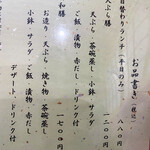 お品書き(税込)
日替わりランチ(平日のみ) 八八〇円
天ぷら膳 一、二〇〇円
天ぷら 茶碗蒸し
小鉢 サラダ
ご飯 漬物 赤だし
和膳 一七〇〇円
お造り 天ぷら 焼き物 茶碗蒸し
小鉢 サラダ
ご飯 漬物 赤だし
デザート ドリンク付